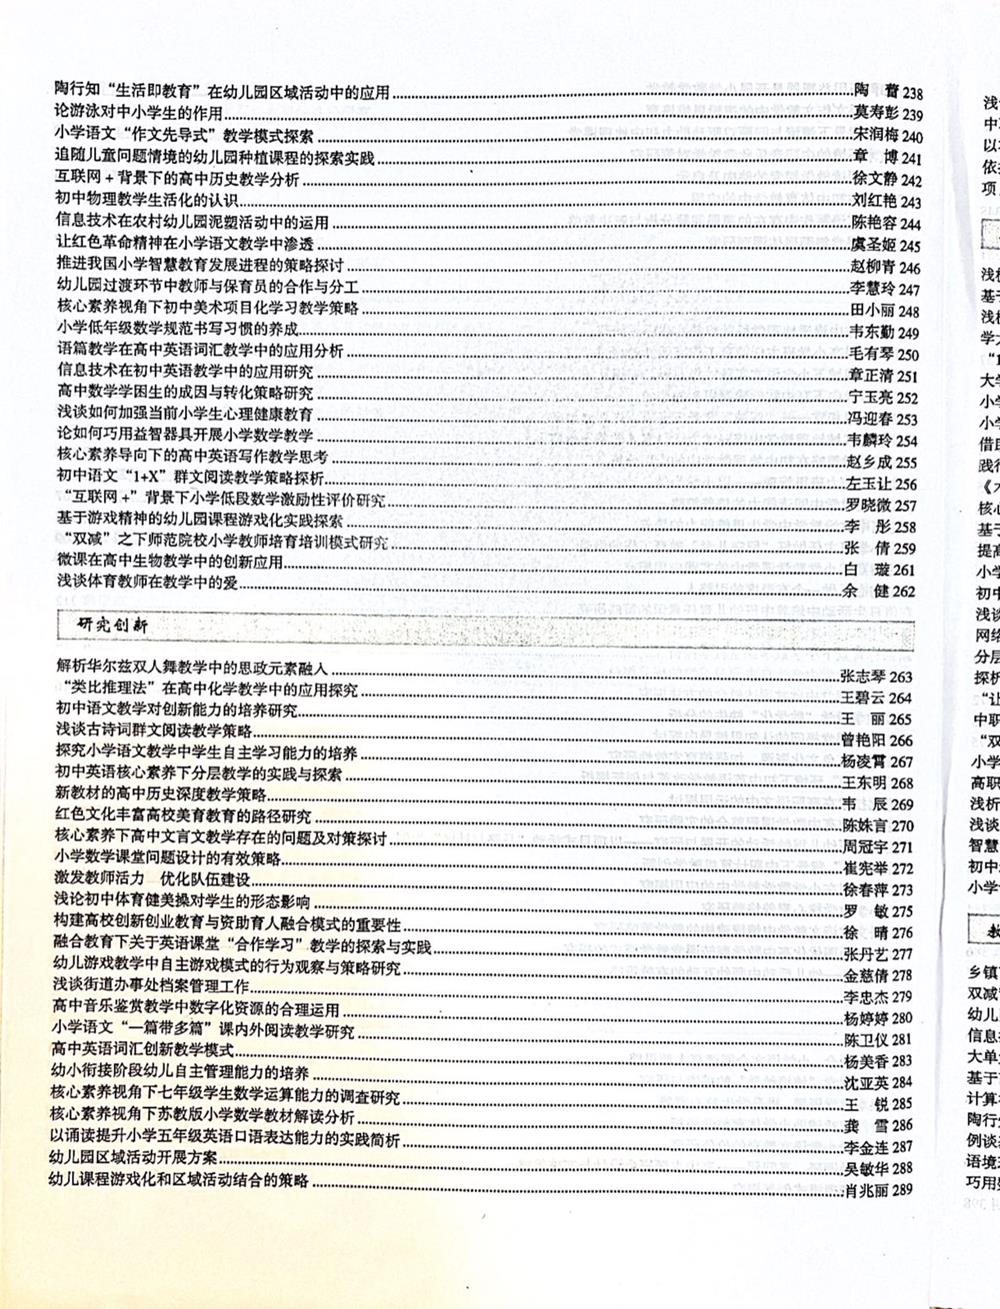 陶行知“生活即教育”在幼儿园区域活动中的应用 陶 蕾 238
论游泳对中小学生的作用 莫寿彭 239
小学语文“作文先导式”教学模式探索 宋润梅 240
追随儿童问题情境的幼儿园种植课程的探索实践 章 博 241
互联网+背景下的高中历史教学分析 徐文静 242
初中物理教学生活化的认识 刘红艳 243
信息技术在农村幼儿园泥塑活动中的运用 陈艳容 244
让红色革命精神在小学语文教学中渗透 虞圣姬 245
推进我国小学智慧教育发展进程的策略探讨 赵柳青 246
幼儿园过渡环节中教师与保育员的合作与分工 李慧玲 247
核心素养视角下初中美术项目化学习教学策略 田小丽 248
小学低年级数学规范书写习惯的养成 韦东勤 249
语篇教学在高中英语词汇教学中的应用分析 毛有琴 250
信息技术在初中英语教学中的应用研究 章正清 251
高中数学学困生的成因与转化策略研究 宁玉亮 252
浅谈如何加强当前小学生心理健康教育 冯迎春 253
论如何巧用益智器具开展小学数学教学 韦麟玲 254
核心素养导向下的高中英语写作教学思考 赵乡成 255
初中语文“1+X”群文阅读教学策略探析 左玉让 256
“互联网+”背景下小学低段数学激励性评价研究 罗晓微 257
基于游戏精神的幼儿园课程游戏化实践探索 李 彤 258
“双减”之下师范院校小学教师培育培训模式研究 张 倩 259
微课在高中生物教学中的创新应用 白 璇 261
浅谈体育教师在教学中的爱 余 健 262
研究创新
解析华尔兹双人舞教学中的思政元素融入 张志琴 263
“类比推理法”在高中化学教学中的应用探究 王碧云 264
初中语文教学对创新能力的培养研究 王 丽 265
浅谈古诗词群文阅读教学策略 曾艳阳 266
探究小学语文教学中学生自主学习能力的培养 杨凌霄 267
初中英语核心素养下分层教学的实践与探索 王东明 268
新教材的高中历史深度教学策略 韦 辰 269
红色文化丰富高校美育教育的路径研究 陈姝言 270
核心素养下高中文言文教学存在的问题及对策探讨 周冠宇 271
小学数学课堂问题设计的有效策略 崔宪举 272
激发教师活力 优化队伍建设 徐春萍 273
浅论初中体育健美操对学生的形态影响 罗 敏 275
构建高校创新创业教育与资助育人融合模式的重要性 徐 晴 276
融合教育下关于英语课堂“合作学习”教学的探索与实践 张丹艺 277
幼儿游戏教学中自主游戏模式的行为观察与策略研究 金慈倩 278
浅谈街道办事处档案管理工作 李忠杰 279
高中音乐鉴赏教学中数字化资源的合理运用 杨婷婷 280
小学语文“一篇带多篇”课内外阅读教学研究 陈卫仪 281
高中英语词汇创新教学模式 杨美香 283
幼小衔接阶段幼儿自主管理能力的培养 沈亚英 284
核心素养视角下七年级学生数学运算能力的调查研究 王 锐 285
核心素养视角下苏教版小学数学教材解读分析 龚 雪 286
以诵读提升小学五年级英语口语表达能力的实践简析 李金连 287
幼儿园区域活动开展方案 吴敏华 288
幼儿课程游戏化和区域活动结合的策略 肖兆丽 289